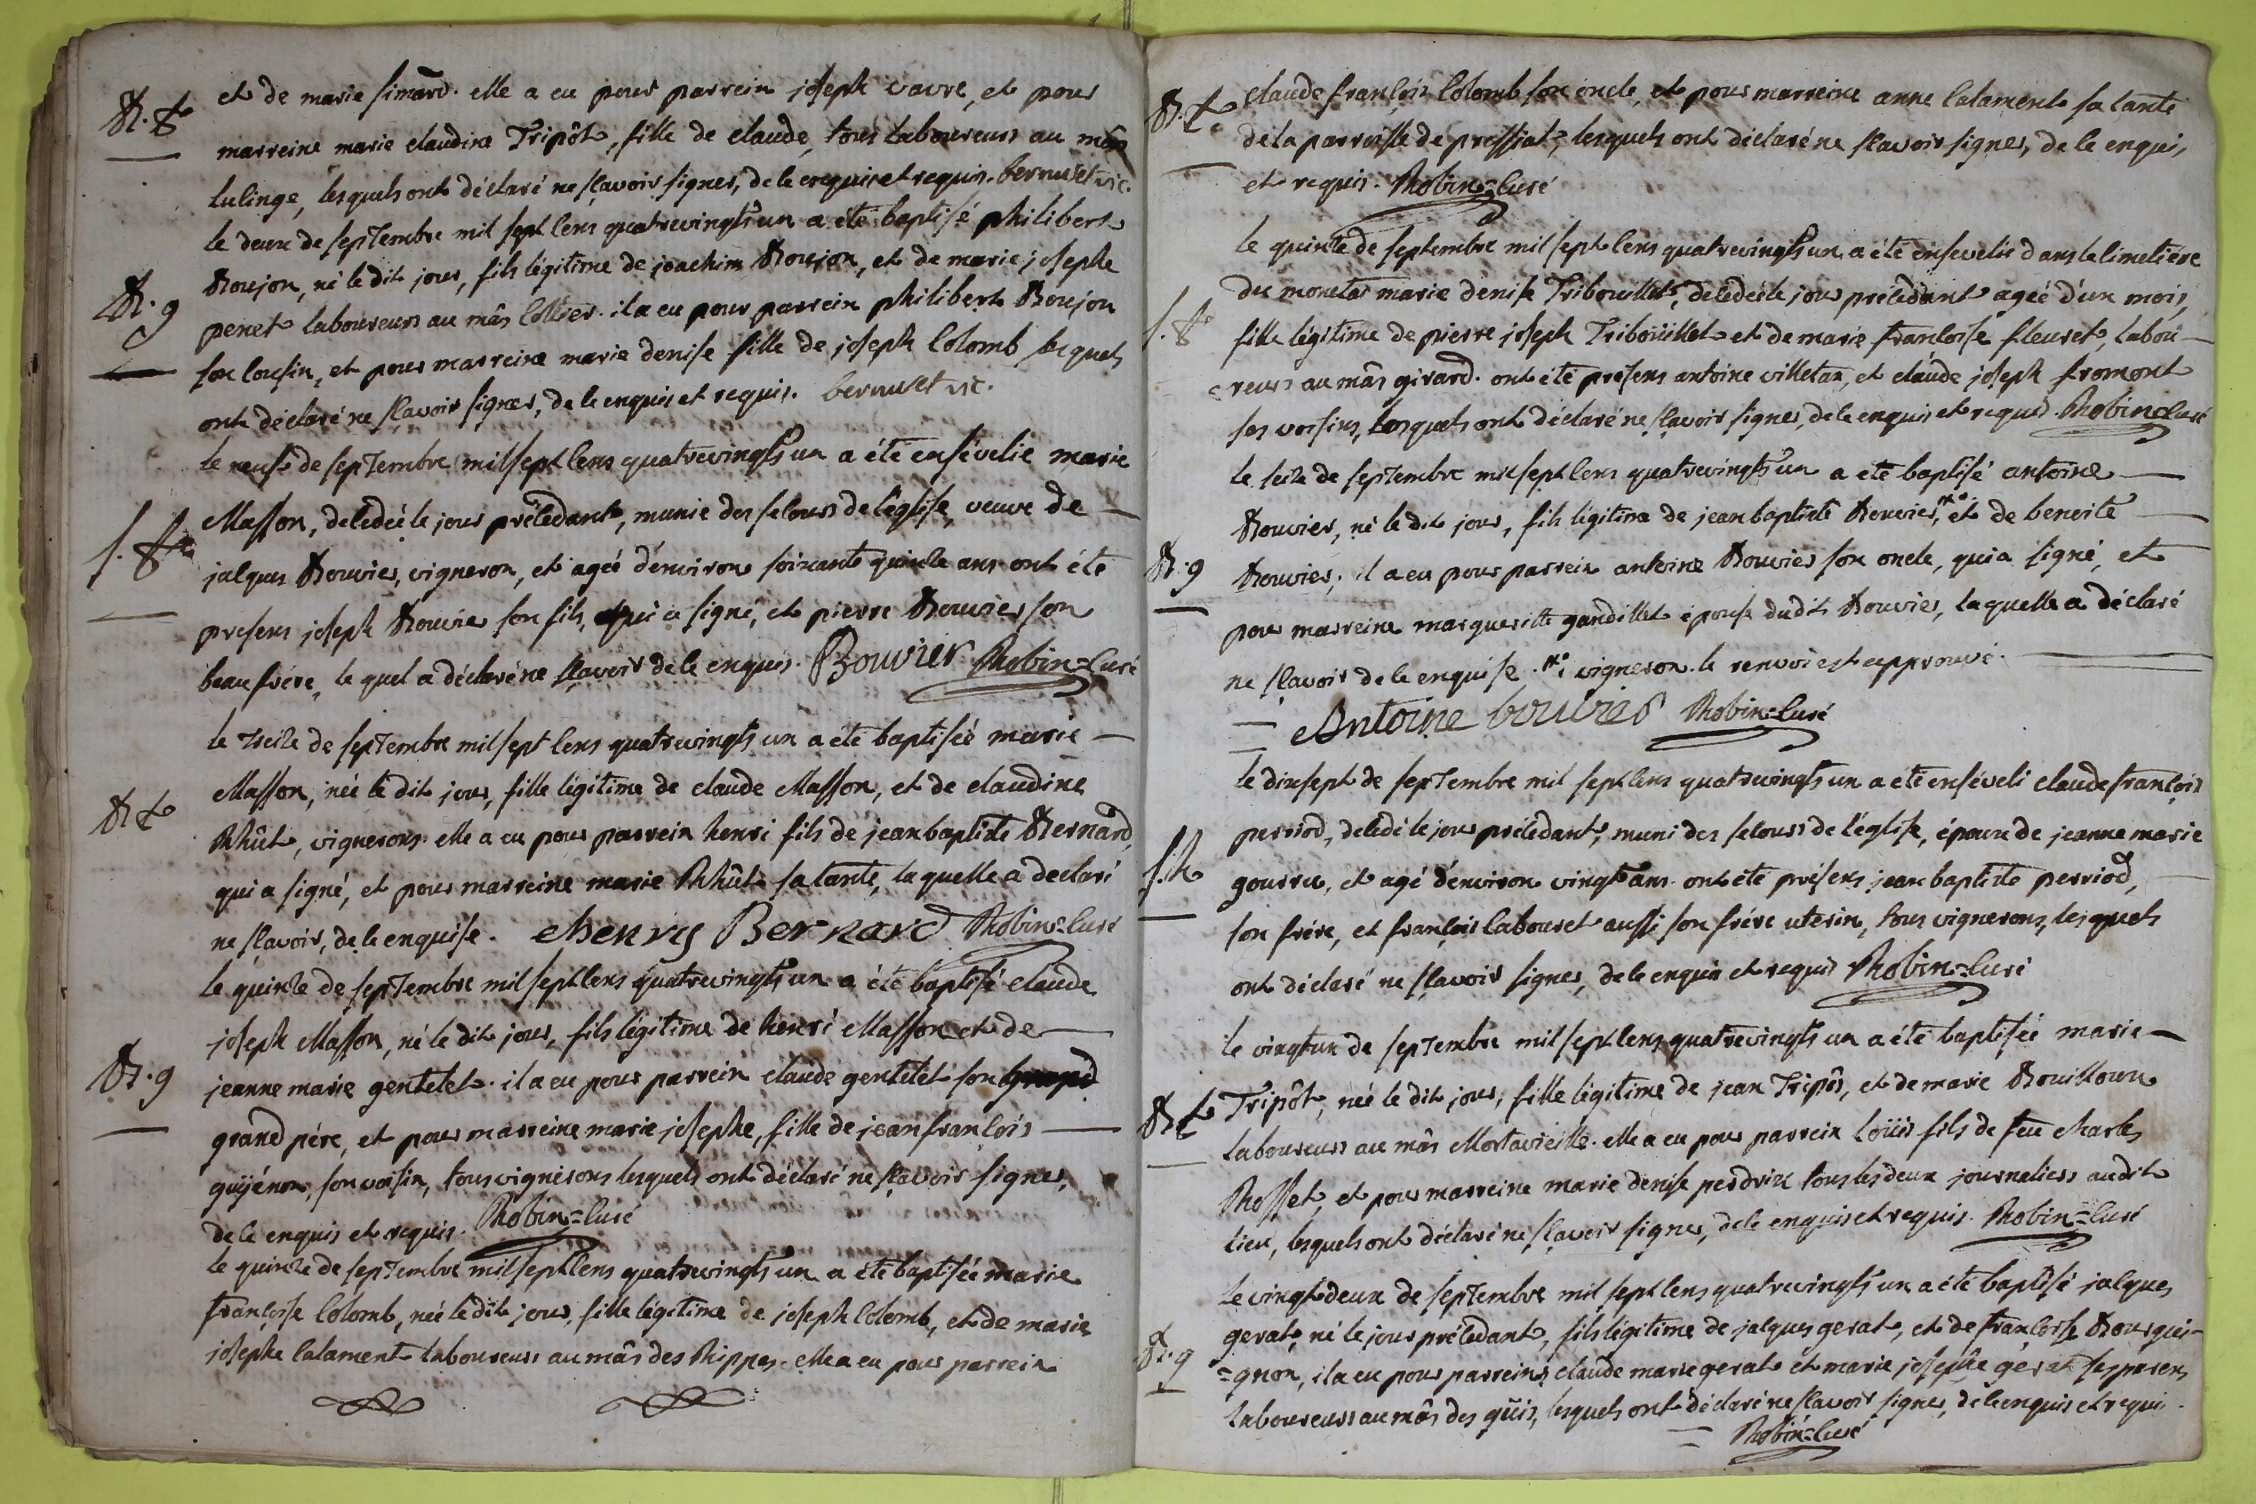 B. f.
et de marie simard. elle a eu pour parrein joseph vavre, et pour
marreine marie claudine Tripôt, fille de claude, tous laboureurs au mâs
lulinge, lesquels ont déclaré ne sçavoir signer, de ce enquis et requis. bernuset vic.
le deux de septembre mil sept cens quatrevingts un a été baptisé philibert
B. g
Boujon, né le dit jour, fils légitime de joachim Boujon, et de marie josephe
penet laboureurs au mâs collier. il a eu pour parrein philibert Boujon
son cousin, et pour marreine marie denise fille de joseph Colomb lesquels
ont déclaré ne sçavoir signer, de ce enquis et requis. bernuset vic.
le neuf de septembre mil sept cens quatrevingts un a été ensévelie marie
s. f.
Masson, décédée le jour précédant, munie des secours de l'église, veuve de
jacques Bouvier, vigneron, et agée d'environ soixante quinze ans ont été
presens joseph Bouvier son fils, qui a signé, et pierre Bouvier son
beau frére, le quel a déclaré ne sçavoir de ce enquis. Bouvier Robin=curé
le treize de septembre mil sept cens quatrevingts un a été baptisée marie
B f
Masson, née le dit jour, fille légitime de claude Masson, et de claudine
Rhût, vignerons. elle a eu pour parrein henri fils de jean baptiste Bernard,
qui a signé, et pour marreine marie Rhût sa tante, la quelle a declaré
ne sçavoir, de ce enquise. henry Bernard Robin=curé
le quinze de septembre mil sept cens quatrevingts un a été baptisé claude
joseph Masson, né le dit jour, fils légitime de henri Masson et de
B. g
jeanne marie gentetet. il a eu pour parrein claude gentetet son
grand pére, et pour marreine marie josephe, fille de jean françois
guijénon, son voisin, tous vignerons lesquels ont déclaré ne sçavoir signer,
de ce enquis et requis. Robin=curé
le quinze de septembre mil sept cens quatrevingts un a été baptisée marie
françoise Colomb, née le dit jour, fille légitime de joseph Colomb, et de marie
josephe calament laboureurs au mâs des Rippes. elle a eu pour parrein
B. f
claude françois Colomb son oncle, et pour marreine anne calament sa tante
de la parroisse de pressiat, lesquels ont déclaré ne sçavoir signer, de ce enquis,
et requis. Robin=curé
le quinze de septembre mil sept cens quatrevingts un a été ensevelie dans le cimetière
du monetai marie denise Tribouillet, décédée le jour précédant agée d'un mois,
s. f.
fille légitime de pierre joseph Tribouillet et de marie françoise fleuret, labou
reurs au mâs girard. ont été presens antoine villetan, et claude joseph fromont
ses voisins, lesquels ont déclaré ne sçavoir signer, de ce enquis et requis Robin=curé
le seize de septembre mil sept cens quatrevingts un a été baptisé antoine
Bouvier, né le dit jour, fils légitime de jean baptiste Bouvier, et de benoite
B. g
Bouvier, il a eu pour parrein antoine Bouvier son oncle, qui a signé, et
pour marreine marguerite gandillet épouse dudit Bouvier, laquelle a déclaré
ne sçavoir de ce enquise. vigneron. le renvoi est approuvé.
Antoine bouvier Robin=curé
le dixsept de septembre mil sept cens quatrevingts un a été enséveli claude françois
perriod, décédé le jour précédant, muni des secours de l'église, époux de jeanne marie
s. h
gourru, et agé d'environ vingt ans. ont été présens jean baptiste perriod,
son frére, et françois labouret aussi son frére uterin, tous vignerons, lesquels
ont déclaré ne sçavoir signer, de ce enquis et requis Robin=curé
le vingtun de septembre mil sept cens quatrevingts un a été baptisée marie
B f
Tripôt, née le dit jour, fille légitime de jean Tripôt, et de marie Bouilloux
laboureurs au mâs Mortavieille. elle a eu pour parrein Loüis fils de feu charles
Rosset, et pour marreine marie denise perdrix tous les deux journaliers au dit
lieu, lesquels ont déclaré ne sçavoir signer, de ce enquis et requis. Robin=curé
le vingtdeux de septembre mil sept cens quatrevingts un a été baptisé jacques
B. g
gerat, né le jour précédant, fils légitime de jacques gerat, et de françoise Bourgui=
=gnon, il a eu pour parreins claude marie gerat et marie josephe gerat ses parens
laboureurs au mâs des guis, lesquels ont déclaré ne sçavoir signer, de ce enquis et requis.
Robin=curé